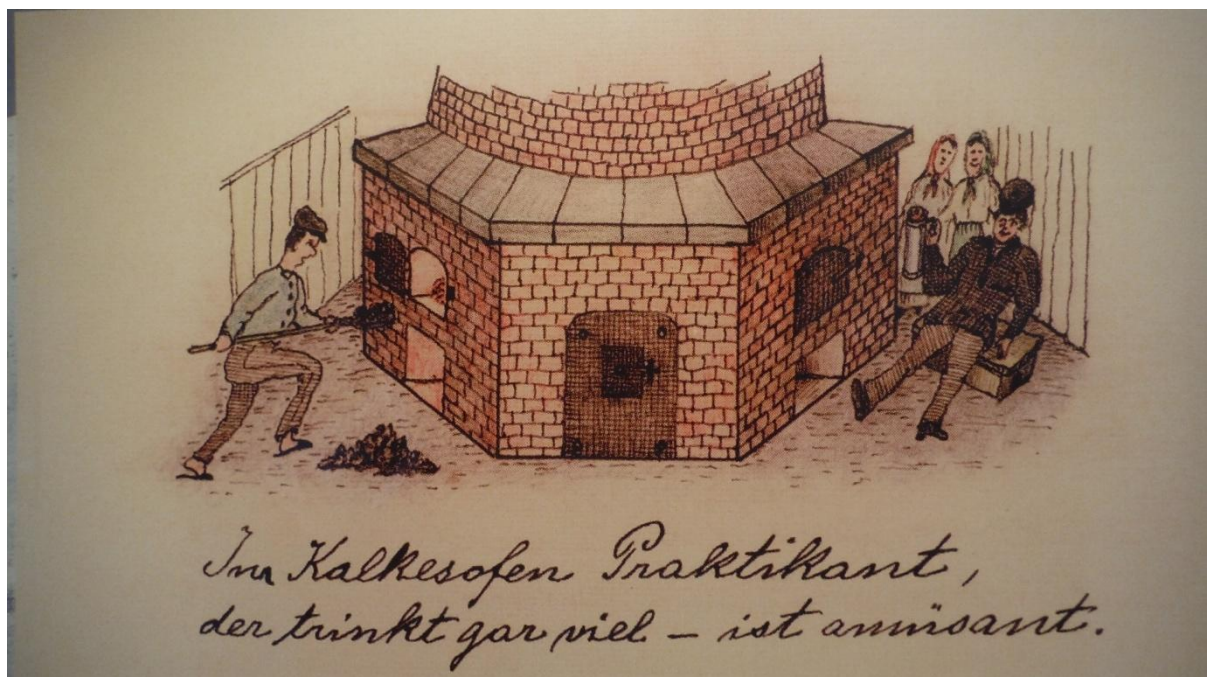 Im Kalkesofen Praktikant,
der trinkt gar viel – ist amüsant.